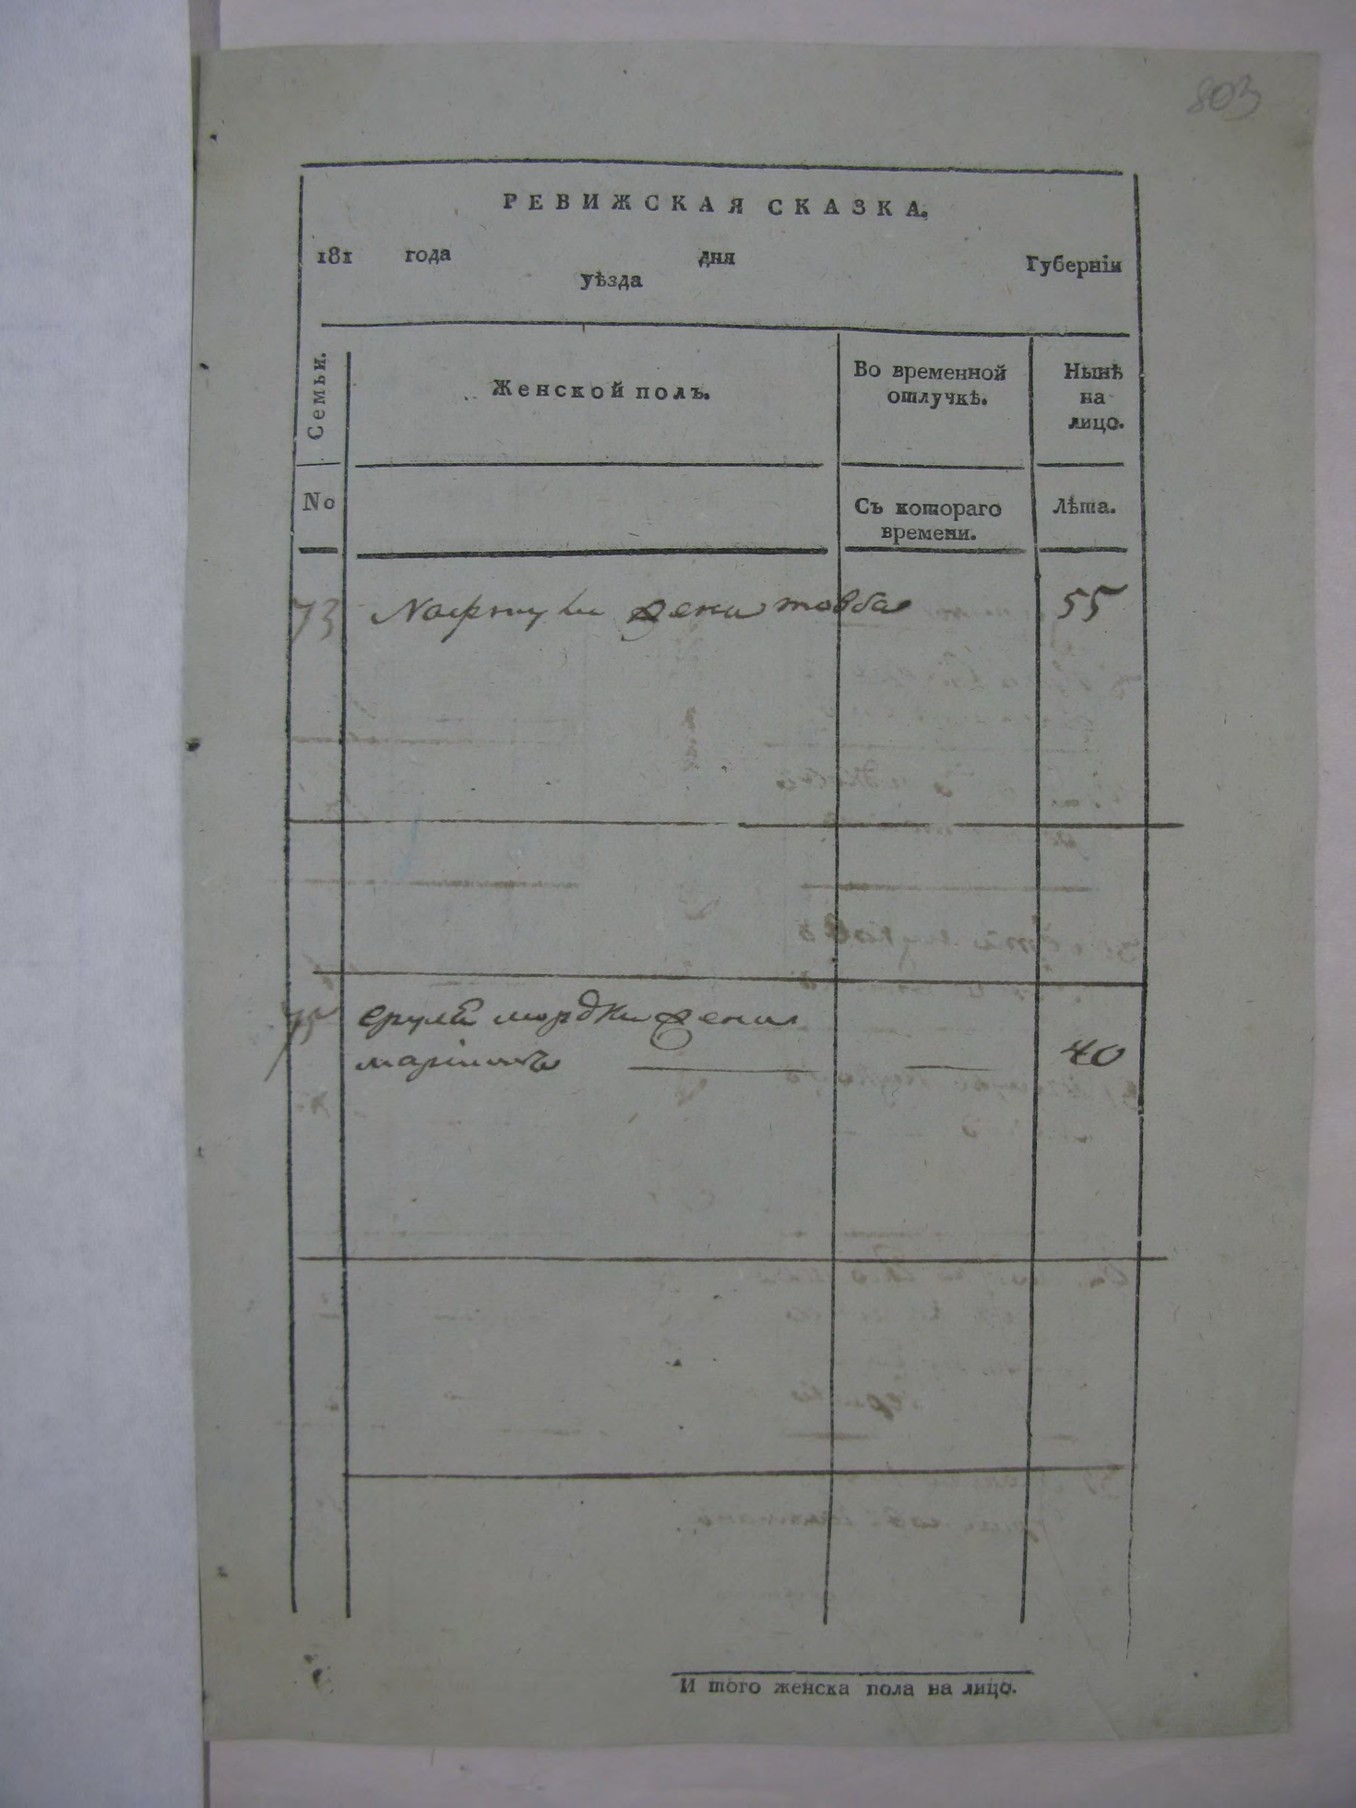 803
РЕВИЖСКАЯ СКАЗКА.
181 года дня Губерніи
уѣзда
Семьи. Женской полъ. Во временной отлучкѣ. Нынѣ на лицо.
No Съ котораго времени. Лѣта.
73 жена товба 55
75 мордки жена
40
И того женска пола на лицо.